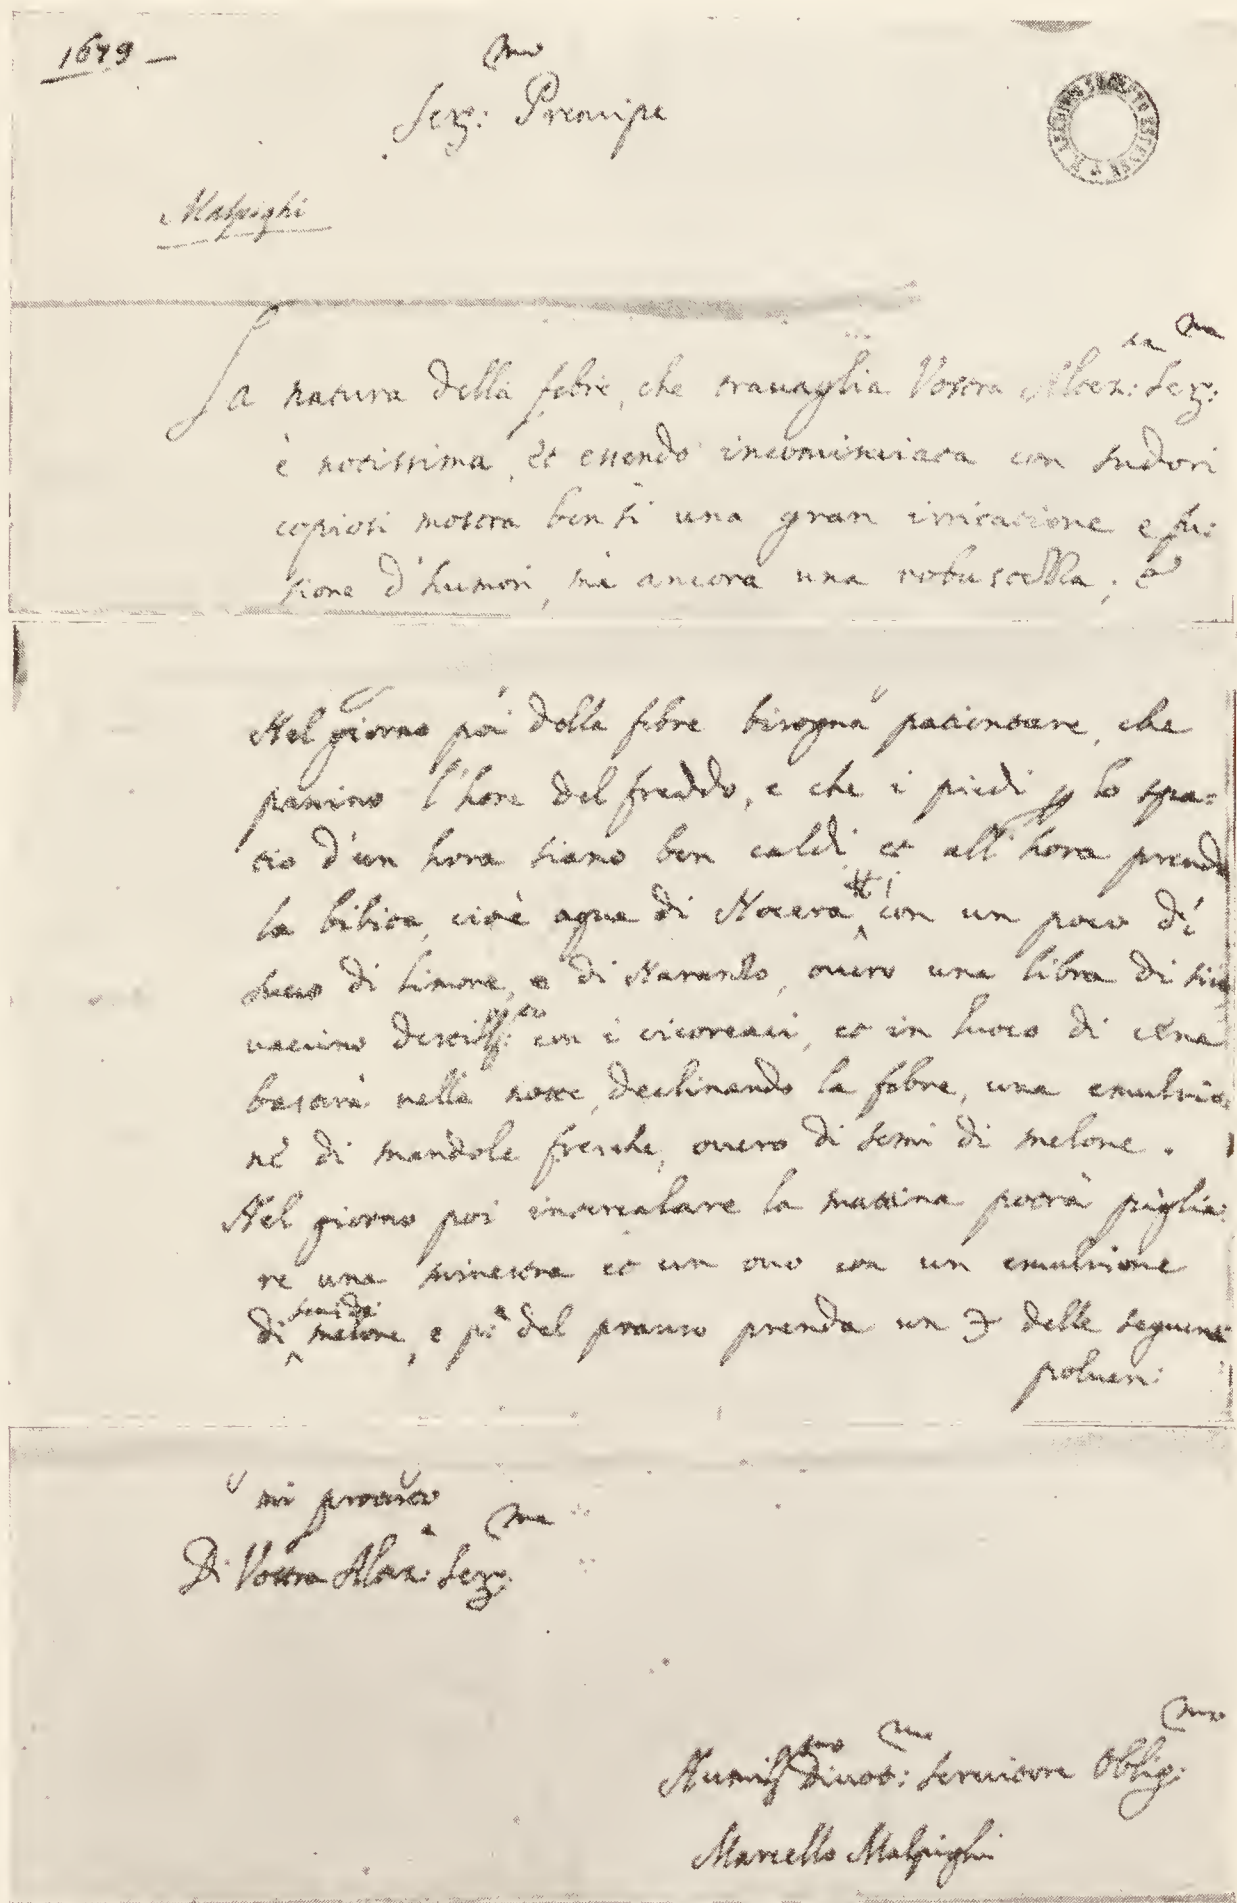 1679 -
mo
Ser: Prencipe
Malpighi
La natura della febre, che trauaglia Vostra Altez:za Ser:ma
è notissima, et essendo incominciata con sudori
copiosi mostra bensi una gran irritatione e fu:
sione d'humori, mà ancora una robustezza; e
Nel giorno poi della febre bisogna patientare, che
passino l'hore del freddo, e che i piedi p lo spa=
tio d'un hora siano ben caldi et all'hora prenda
la bibita, cioè aqua di Nocera con un poco di
succo di limone, e di Naranzo, ouero una libra di
uaccino destill:to con i cicoreaci, et in luoco di cena
bastarà nella notte, declinando la febre, una emulsio:
ne di mandole fresche, ouero di semi di melone.
Nel giorno poi intercalare la mattina potrà piglia:
re una minestra et un ouo con un emulsione
di semi di melone, e p:a del pranso prenda un ℈ delle seguenti
polueri:
mi protesto
Di Vostra Altez:a Ser:ma
Humiliss:mo Diuot:mo Seruitore Oblig:mo
Marcello Malpighi